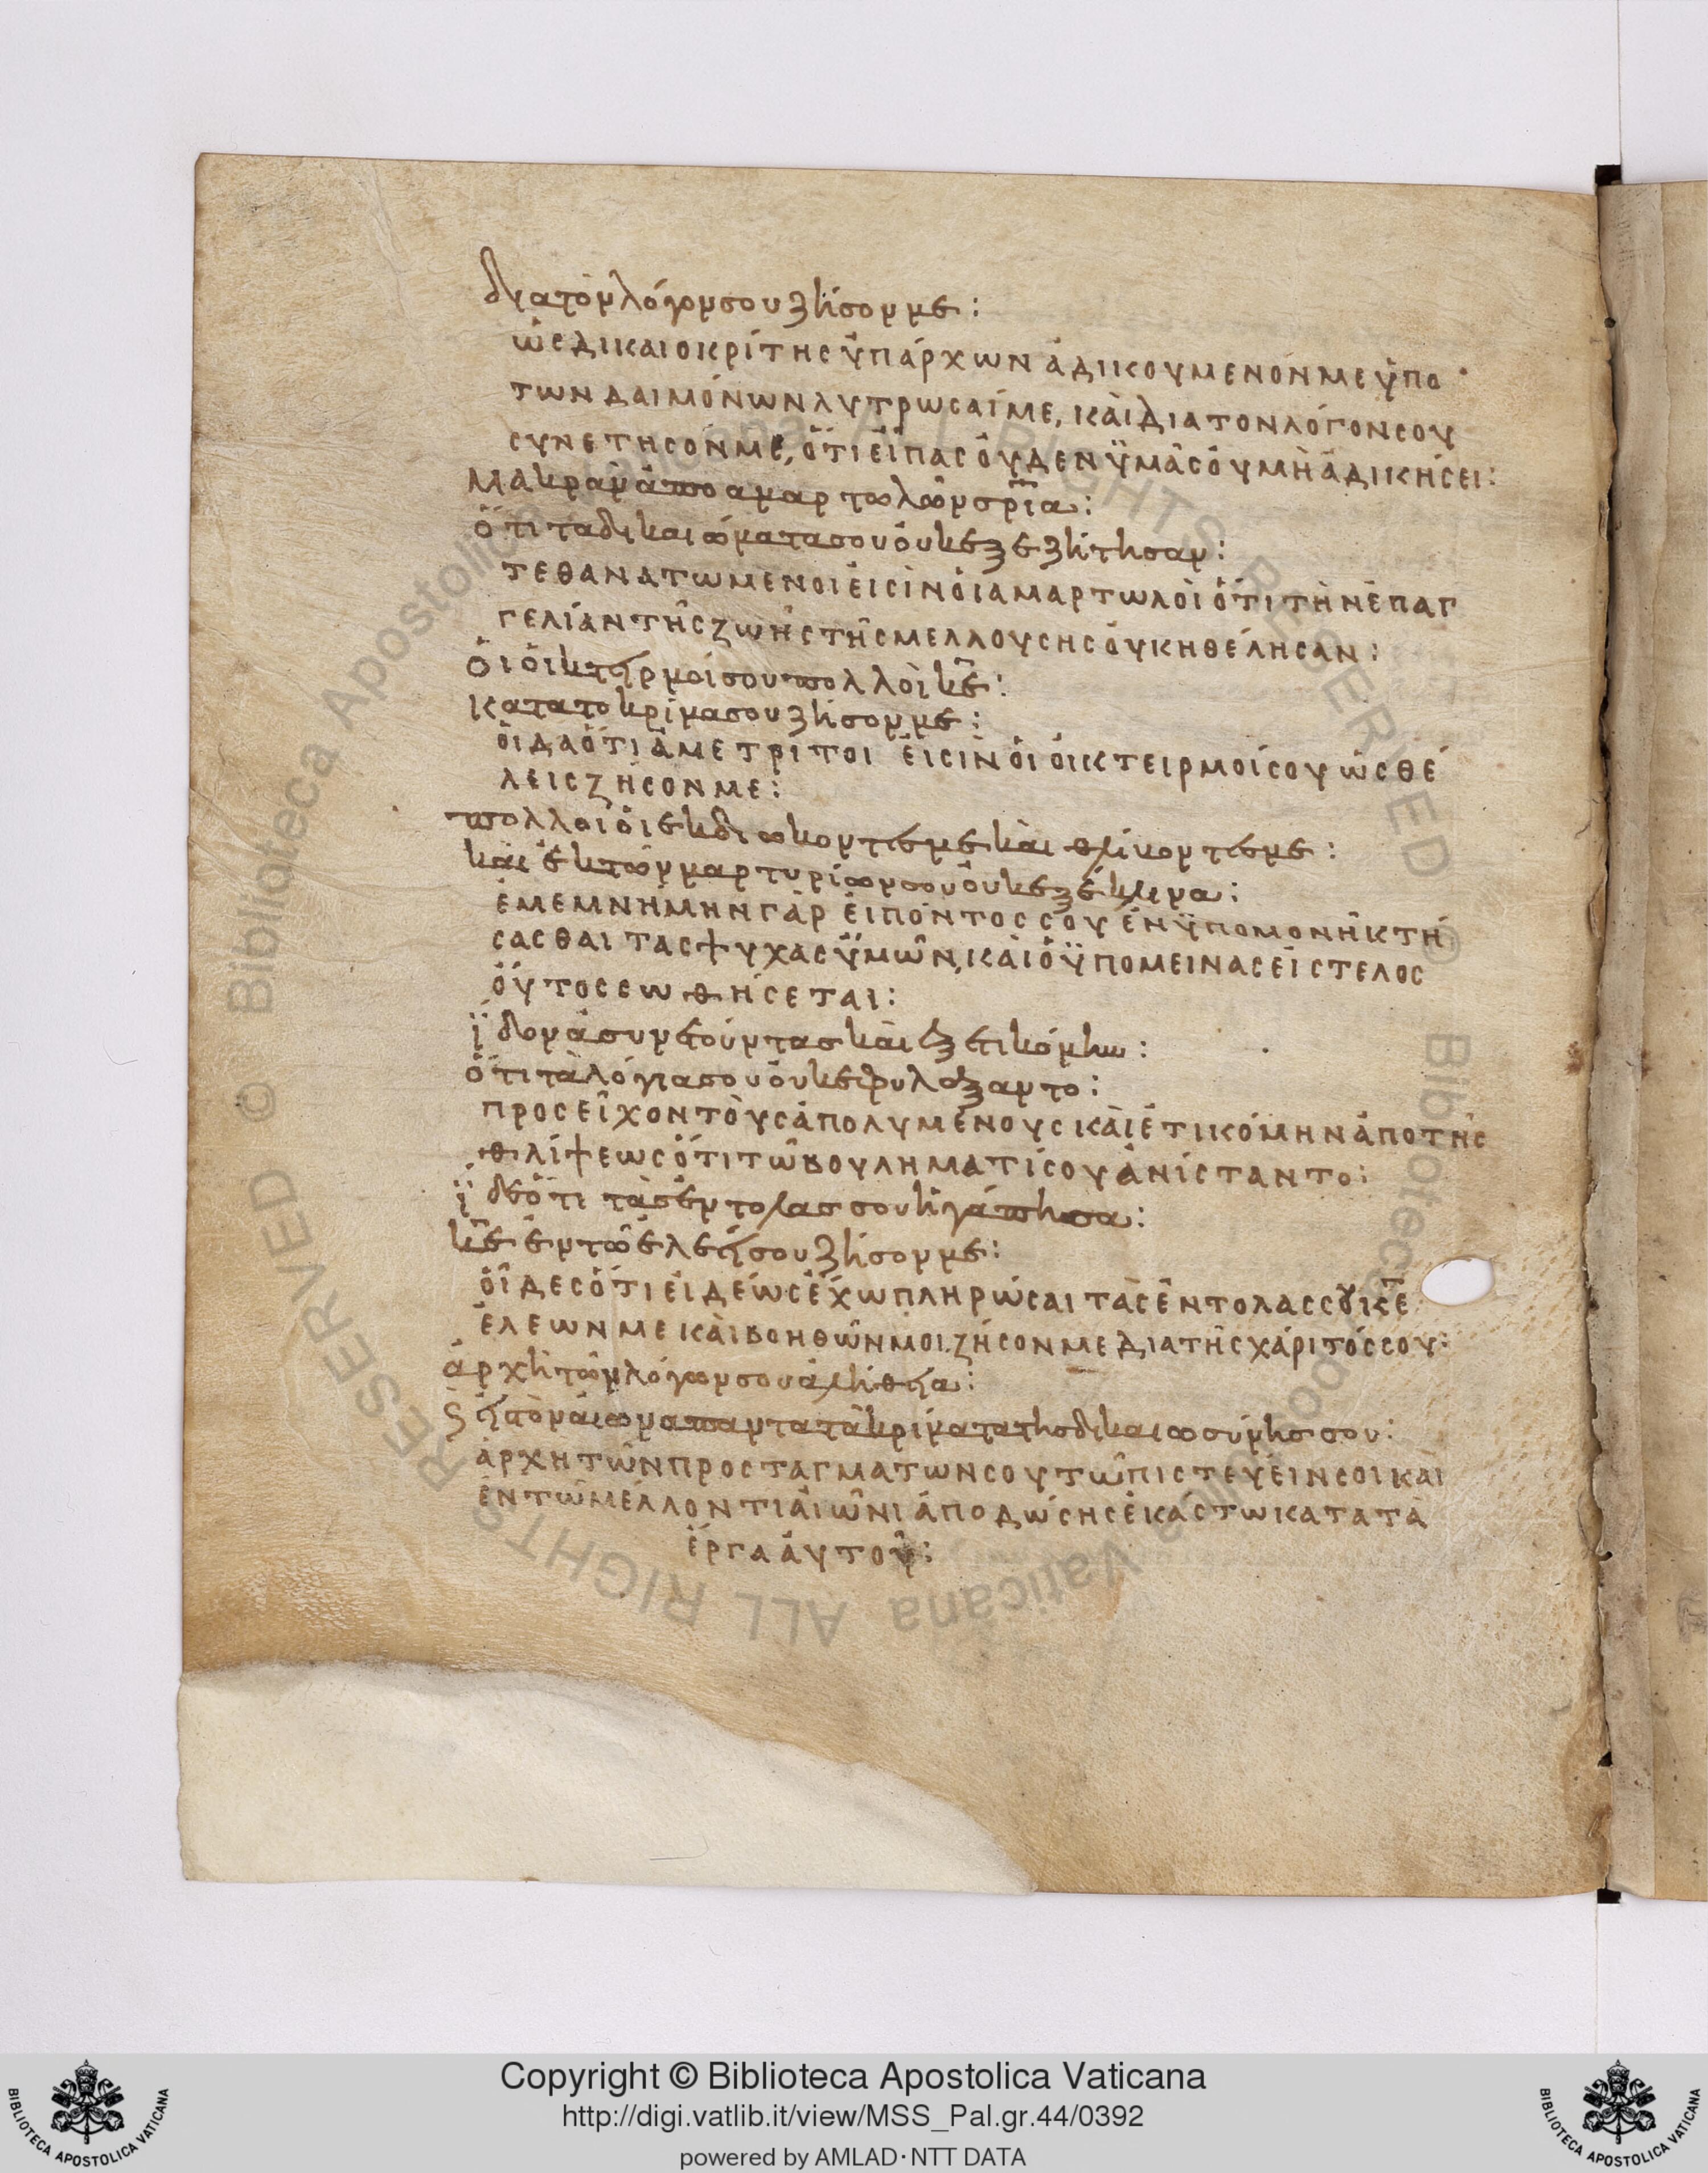 διατὸν λόγον σου ζῆσόν με :
ὡς δικαιοκρίτης ὑπάρχων ἀδικουμενόν με ὑπο
των δαιμόνων λυτρωσαί με, καὶ δια τον λόγον σου
συνετησόν με, ὅτι εἶπας οὐδεν ὑμᾶς οὐ μὴ ἀδικήσει :
Μακρὰν ἀπο αμαρτωλῶν σρία :
ὅτι τα δικαιώματα σου οὐκ εξεζήτησαν :
τεθανατωμενοι εἰσὶν οἱ αμαρτωλοὶ ὅτι τὴν ἐπαγ
γελίαν τῆς ζωῆς τῆς μελλουσης οὐκ ηθέλησαν :
Ὁι οἰκτειρμοί σου πολλοὶ κε :
Κατα το κρίμα σου ζῆσόν με :
οἶδα ὅτι ἀμετρίτοι εἰσὶν οἱ οἰκτειρμοί σου ὡς θέ
λεις ζῆσον με :
πολλοι οἱ εκδιωκοντές με καὶ θλίβοντές με :
καὶ ἐκ τῶν μαρτυρίων σου οὐκ εξέκλινα :
ἐμεμνήμην γὰρ εἰπόντος σου ἐν ὑπομονῆ κτή
σασθαι τας ψυχας ὑμῶν, καὶ ὁ ὑπομεινας εἰς τελος
οὗτος σωθήσεται :
ϊδον ἀσυνετοῦντας καὶ ἐξετικόμην :
ὅτι τὰ λόγια σου οὐκ εφυλάξαντο :
προσεῖχον τοὺς ἀπολυμένους καὶ ἐτικόμην ἀπο τῆς
θλίψεως ὅτι τῶ βουληματί σου ἀνίσταντο :
ϊδε ὅτι τὰς ἐντολας σου ἠγάπησα :
κε ἐν τῶ ἐλέει σου ζῆσόν με :
οἶδες ὅτι εἰδέως ἔχω πληρώσαι τὰς ἐντολας σου κε
ἐλεων με καὶ βοηθῶν μοι. ζῆσον με δια τῆς χάριτός σου :
ἀρχὴ τῶν λόγων σου ἀλήθεια :
ϛ εἰς τὸν αἰωνα παντα τὰ κρίματα της δικαιωσύνης σου :
ἀρχὴ τῶν προσταγματων σου τῶ πιστευειν σοι καὶ
ἐν τῶ μέλλοντι αἰῶνι ἀποδώσης ἑκάστω κατα τὰ
ἔργα ἀυτοῦ :
Copyright © Biblioteca Apostolica Vaticana
http://digi.vatlib.it/view/MSS_Pal.gr.44/0392
powered by AMLAD·NTT DATA